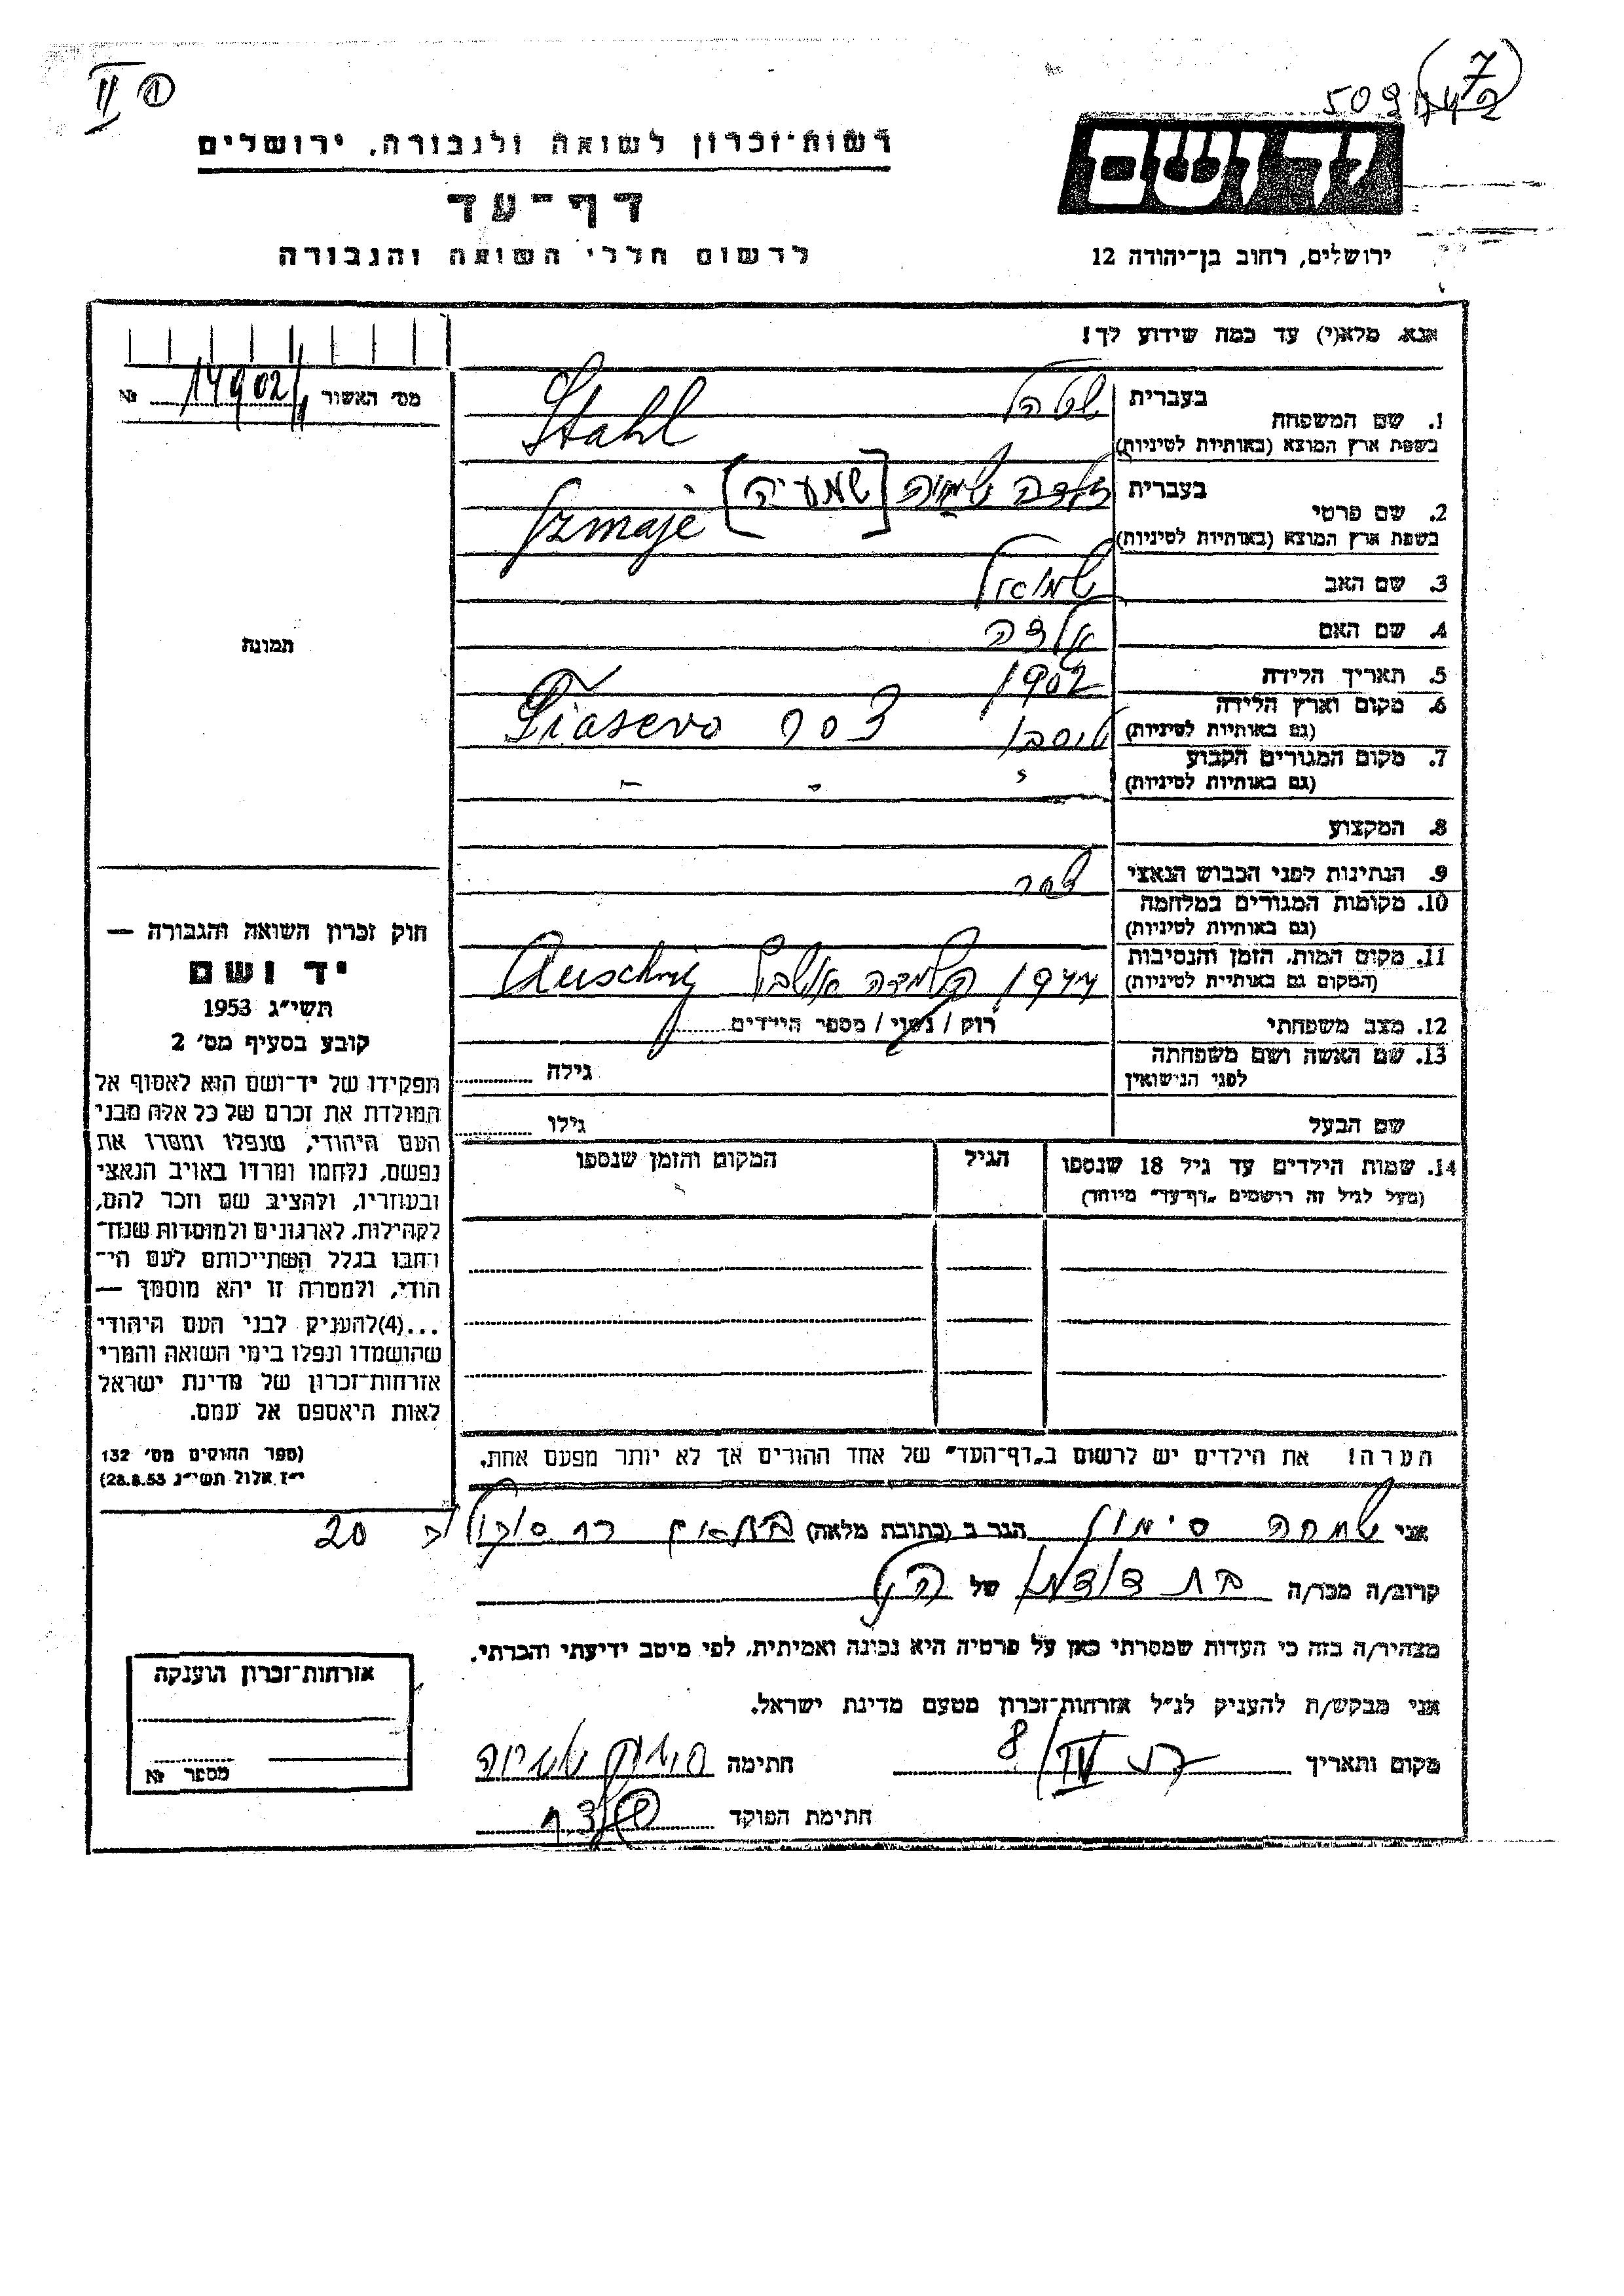 II 1
7
509 742
רשות־זכרון לשואה ולגבורה, ירושלים
דף־עד
לרשום חללי השואה והגבורה
יד ושם
ירושלים, רחוב בן־יהודה 12
אנא, מלא(י) עד כמה שידוע לך!
מס׳ האשור 14902 №
1. שם המשפחה
בעברית שטהל
בשפת ארץ המוצא (באותיות לטיניות) Stahl
2. שם פרטי
בעברית [שמעיה]
בשפת ארץ המוצא (באותיות לטיניות) Szmaje
3. שם האב שמואל
4. שם האם
5. תאריך הלידה 1902
6. מקום וארץ הלידה
(גם באותיות לטיניות) צסר Ťiasevo
7. מקום המגורים הקבוע
(גם באותיות לטיניות) " - -
8. המקצוע
9. הנתינות לפני הכבוש הנאצי צסר
10. מקומות המגורים במלחמה
(גם באותיות לטיניות)
11. מקום המות, הזמן והנסיבות
(המקום גם באותיית לטיניות) 1944
12. מצב משפחתי רוק / נשוי / מספר הילדים
13. שם האשה ושם משפחתה
לפני הנישואין גילה
שם הבעל גילו
14. שמות הילדים עד גיל 18 שנספו
(מעל לגיל זה רושמים „דף־עד״ מיוחד)
הגיל
המקום והזמן שנספו
הערה! את הילדים יש לרשום ב„דף־העד״ של אחד ההורים אך לא יותר מפעם אחת.
תמונה
חוק זכרון השואה והגבורה —
יד ושם
תשי״ג 1953
קובע בסעיף מס׳ 2
תפקידו של יד־ושם הוא לאסוף אל
המולדת את זכרם של כל אלה מבני
העם היהודי, שנפלו ומסרו את
נפשם, נלחמו ומרדו באויב הנאצי
ובעוזריו, ולהציב שם וזכר להם,
לקהילות, לארגונים ולמוסדות שנח־
רחבו בגלל השתייכותם לעם הי־
הודי, ולמטרה זו יהא מוסמך —
...(4)להעניק לבני העם היהודי
שהושמדו ונפלו בימי השואה והמרי
אזרחות־זכרון של מדינת ישראל
לאות היאספם אל עמם.
(ספר החוקים מס׳ 132
י״ז אלול תשי״ג 28.8.53)
אני שמחה סימון הגר ב (כתובת מלאה) 20
קרוב/ה מכר/ה בת דודתו של הנ״ל
מצהיר/ה בזה כי העדות שמסרתי כאן על פרטיה היא נכונה ואמיתית, לפי מיטב ידיעתי והכרתי.
אני מבקש/ת להעניק לנ״ל אזרחות־זכרון מטעם מדינת ישראל.
מקום ותאריך 8/IV חתימה סימון שמחה
חתימת הפוקד
אזרחות־זכרון הוענקה
מספר №